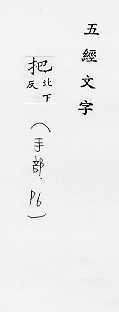 五經文字
把 北下反
（手部. P6）